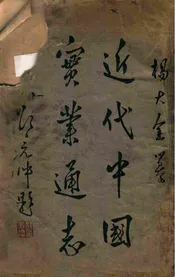 楊大金著
近代中國
實業通志
邵元沖題